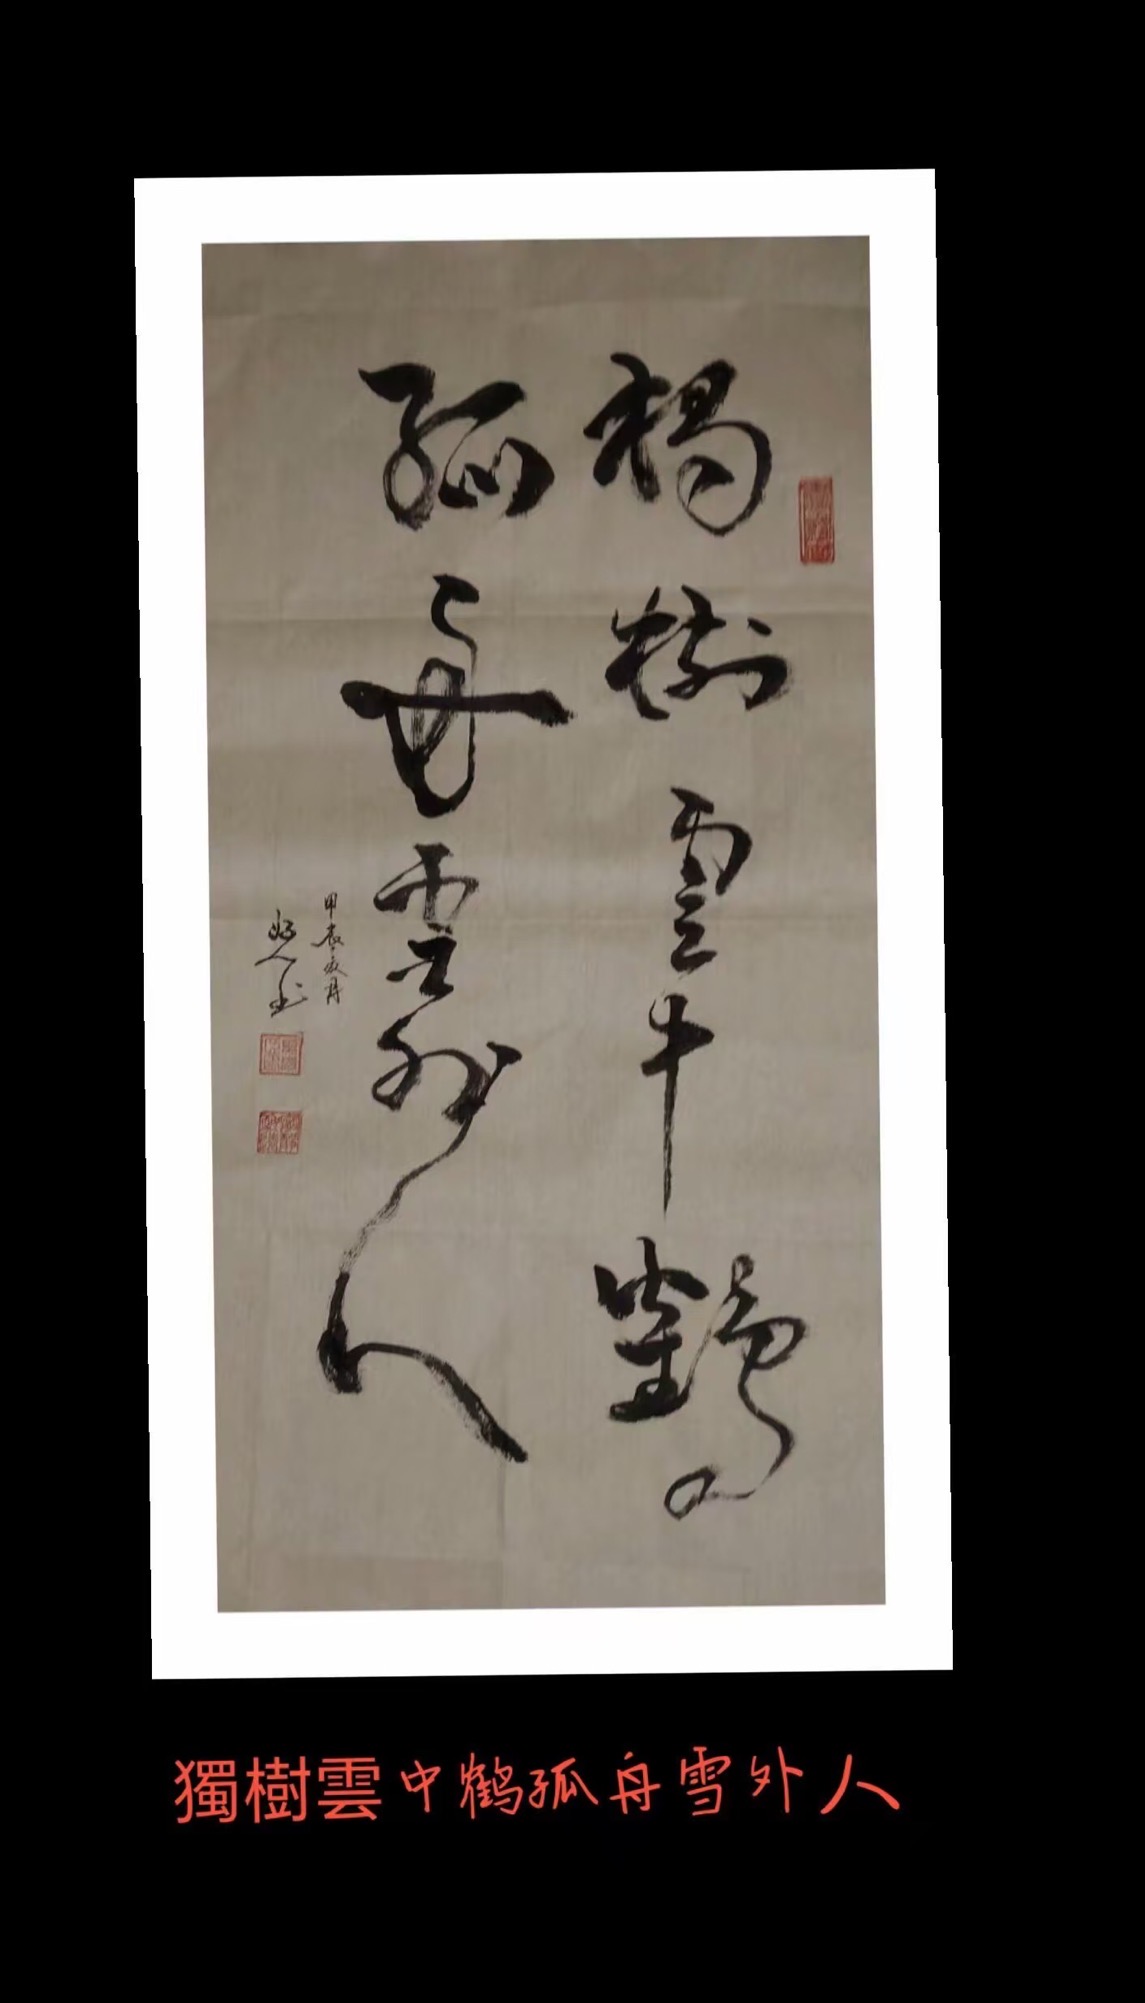 獨樹雲中鶴
孤舟雪外人
甲辰夏月
好人书
獨樹雲中鹤孤舟雪外人